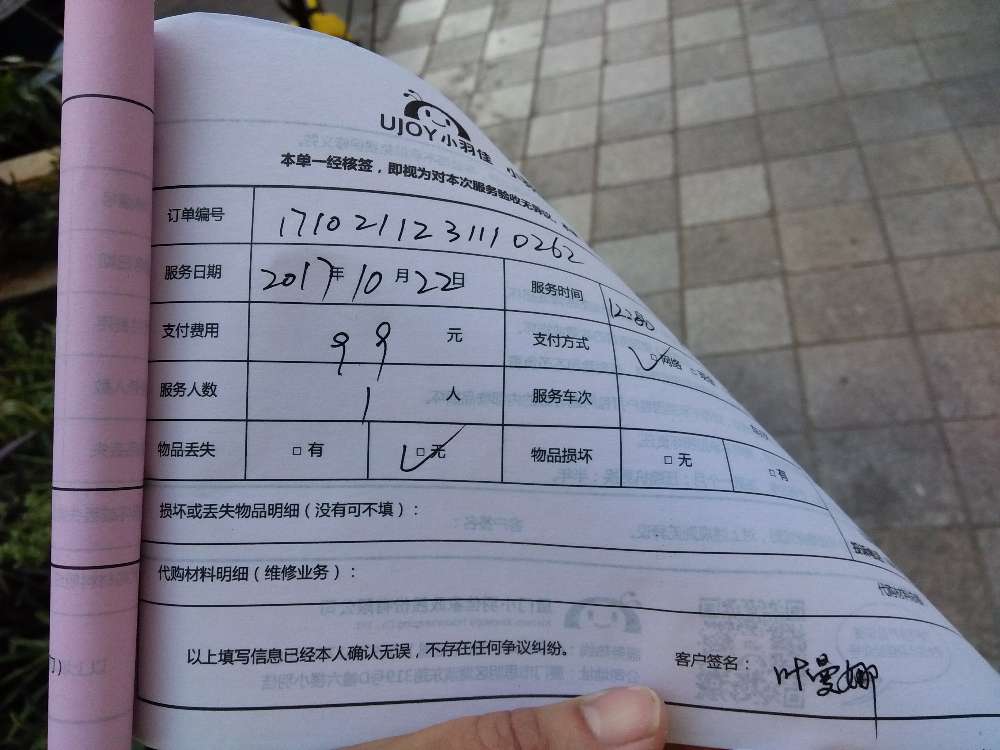 UJOY小羽佳
本单一经核签，即视为对本次服务验收无异议。
订单编号 1710211231110262
服务日期 2017年10月22日 服务时间
支付费用 99 元 支付方式 □网络
服务人数 1 人 服务车次
物品丢失 □有 □无 物品损坏 □无 □有
损坏或丢失物品明细（没有可不填）：
代购材料明细（维修业务）：
以上填写信息已经本人确认无误，不存在任何争议纠纷。
客户签名：叶曼娜